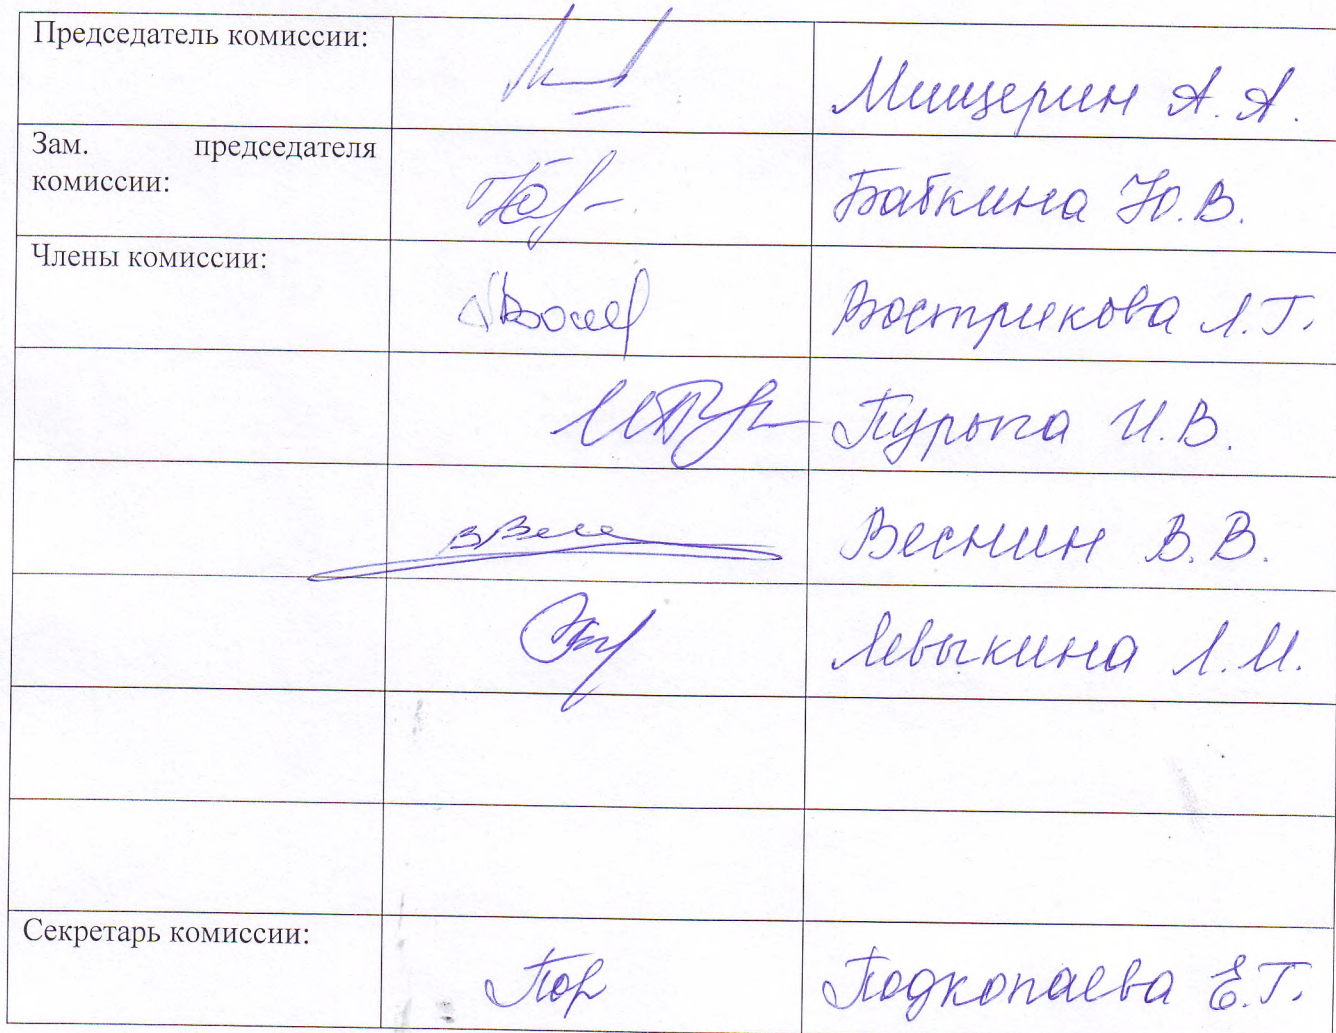 Председатель комиссии:
Мищерин А. А.
Зам. председателя
комиссии:
Бабкина Ю. В.
Члены комиссии:
Вострикова Л. Г.
Пурыга И. В.
Веснин В. В.
Левыкина Л. М.
Секретарь комиссии:
Подкопаева Е. Г.